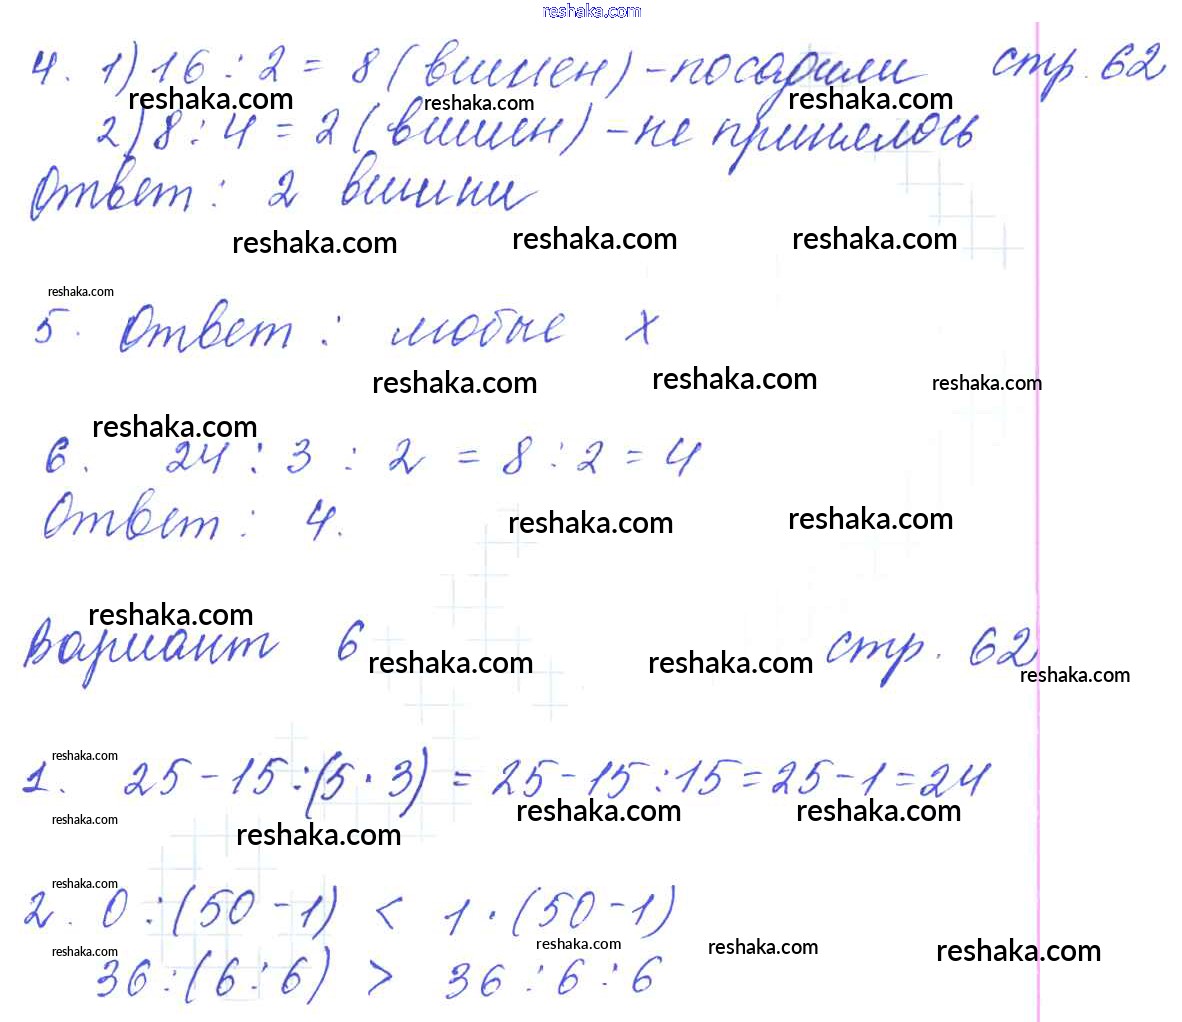 reshaka.com
4. 1) 16 : 2 = 8 (вишен) - посадили стр. 62
reshaka.com reshaka.com reshaka.com
2) 8 : 4 = 2 (вишен) - не принялось
Ответ : 2 вишни
reshaka.com reshaka.com reshaka.com
reshaka.com
5. Ответ : любые x
reshaka.com reshaka.com reshaka.com
reshaka.com
6. 24 : 3 : 2 = 8 : 2 = 4
Ответ : 4.
reshaka.com reshaka.com
reshaka.com
Вариант 6 стр. 62
reshaka.com reshaka.com reshaka.com
reshaka.com
1. 25 - 15 : (5 · 3) = 25 - 15 : 15 = 25 - 1 = 24
reshaka.com reshaka.com reshaka.com reshaka.com
reshaka.com
2. 0 : (50 - 1) < 1 · (50 - 1)
reshaka.com reshaka.com reshaka.com reshaka.com
36 : (6 : 6) > 36 : 6 : 6